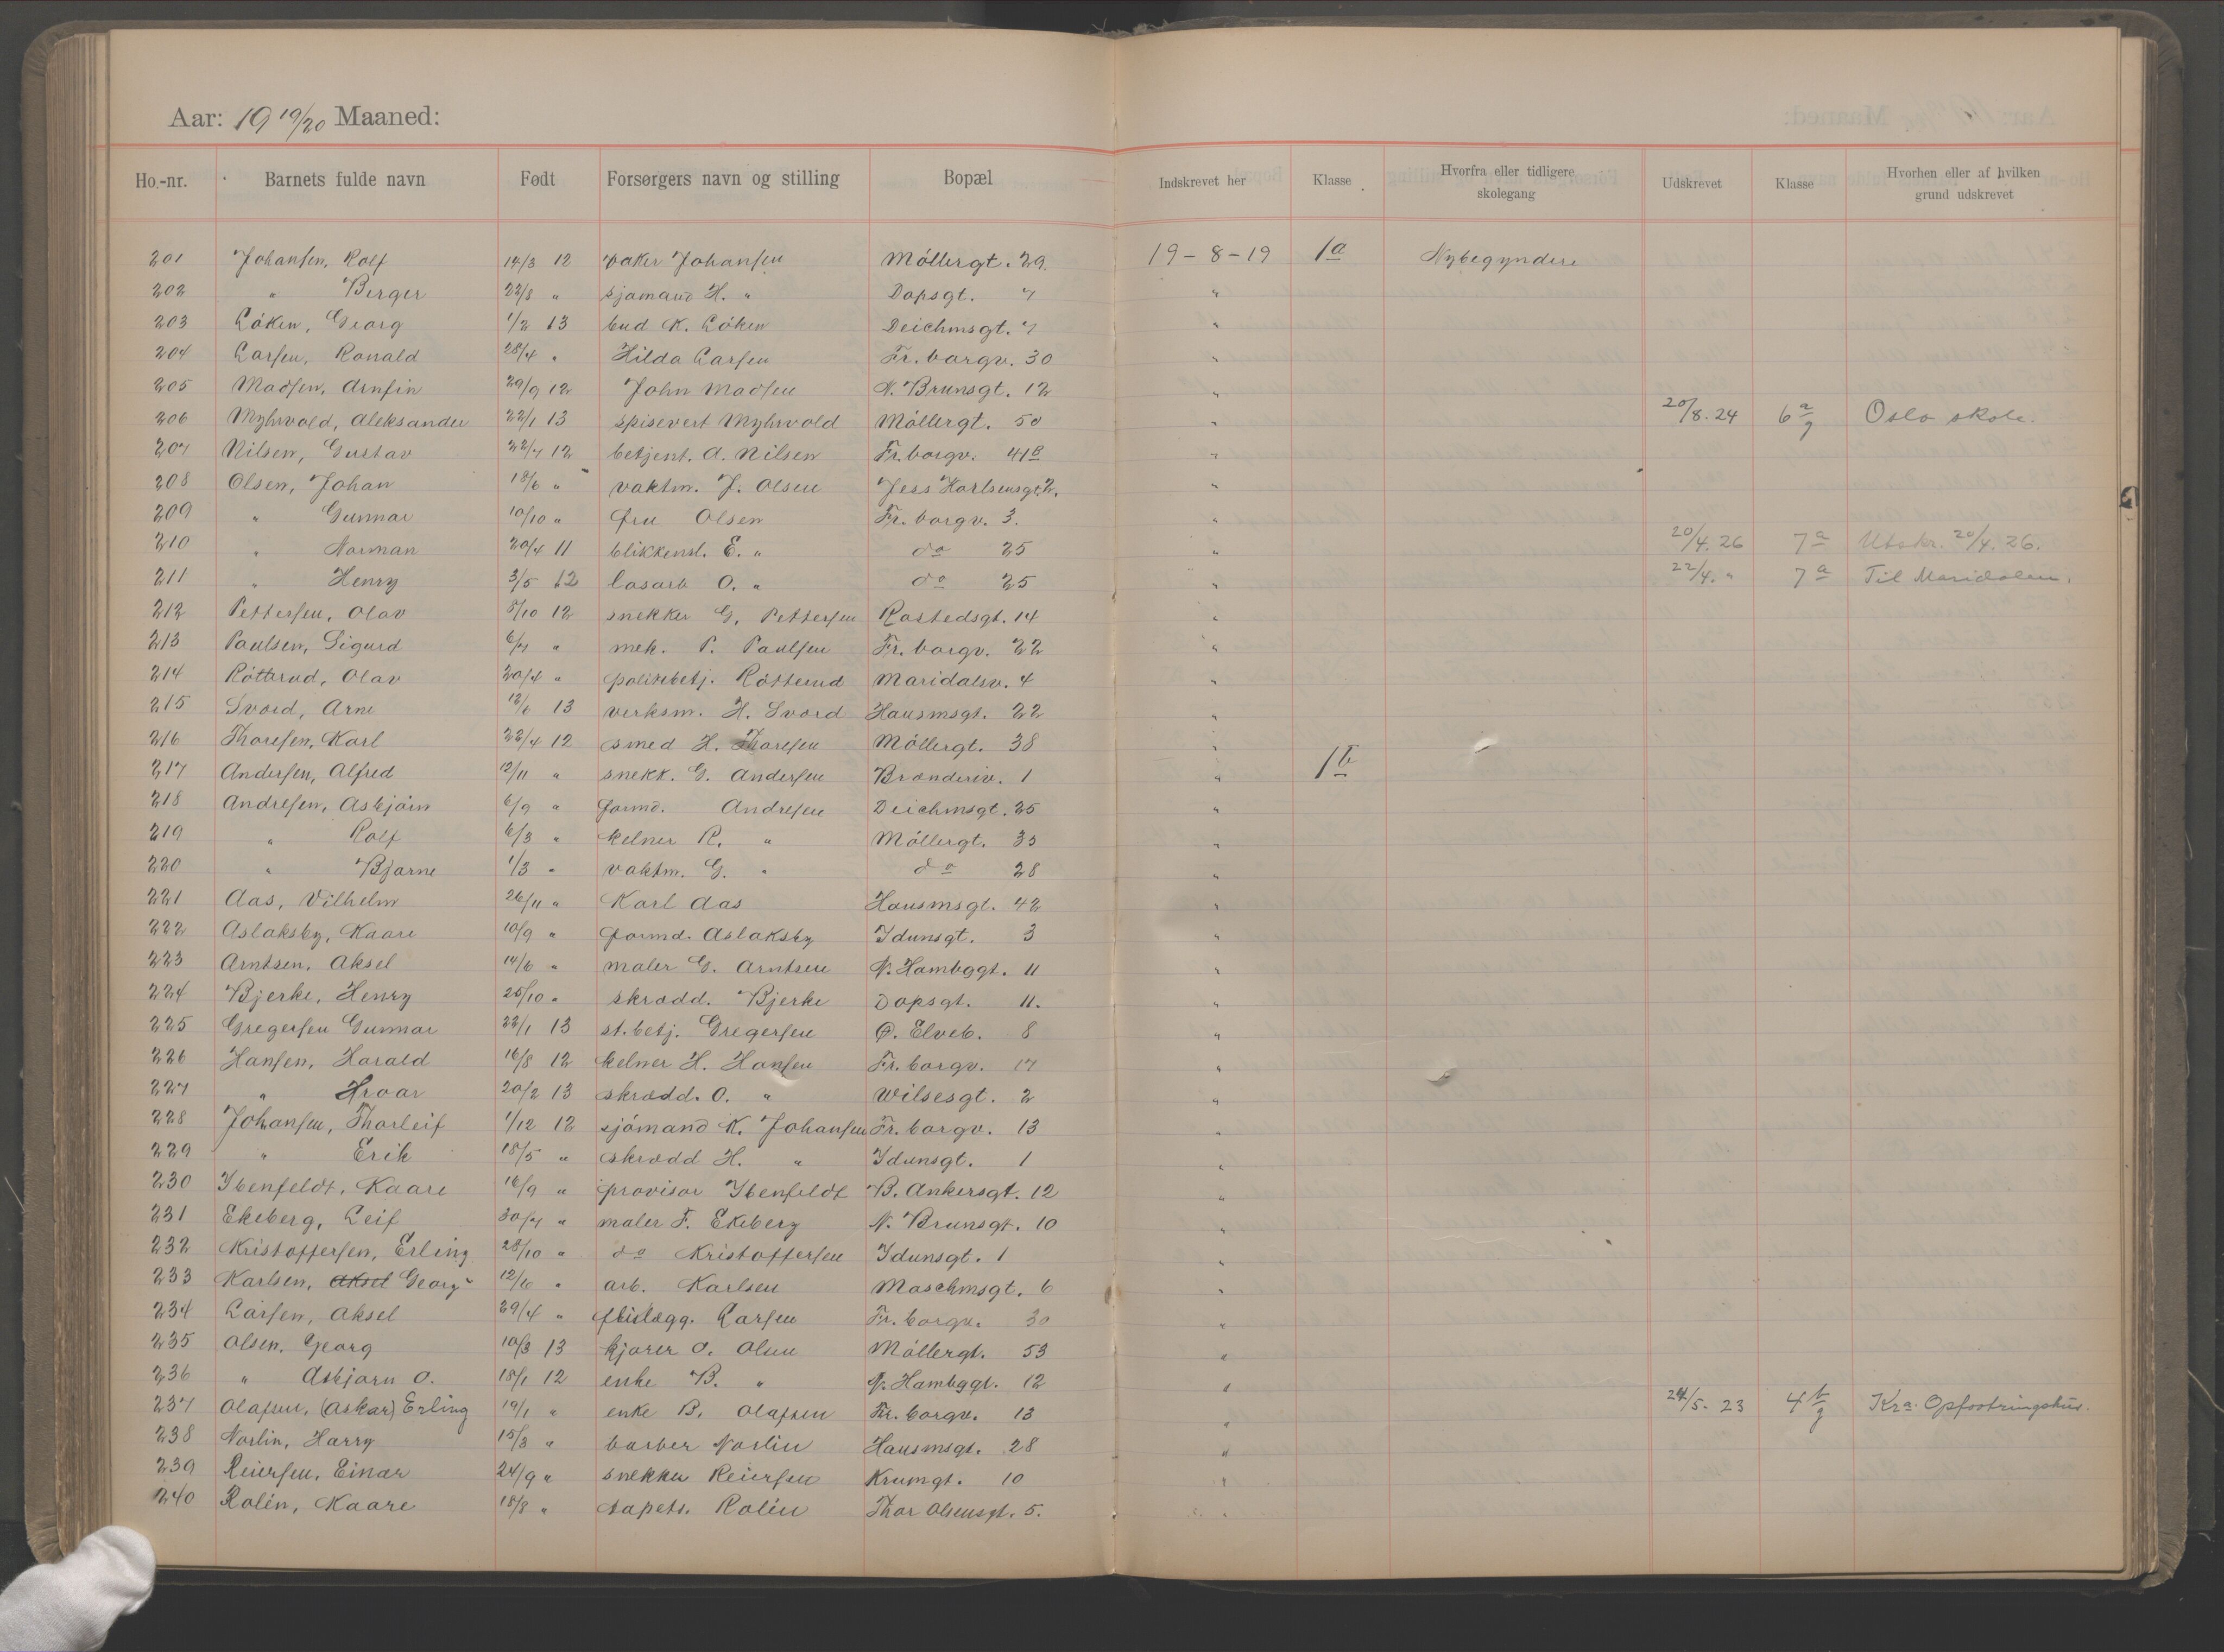 Aar: 19 19/20 Maaned:
Ho.-nr. Barnets fulde navn Født Forsørgers navn og stilling Bopæl Indskrevet her Klasse Hvorfra eller tidligere skolegang Udskrevet Klasse Hvorhen eller af hvilken grund udskrevet
201 Johansen, Rolf 14/3 12 Johansen Möllergt. 29. 19-8-19 1a Nybegyndere
202 " Berger 22/8 " sjømand H. " Dopsgt. 7 "
203 Löken, Georg 1/2 13 bud K. Löken Deichmsgt. 7 "
204 Larsen, Ronald 28/4 " Hilda Larsen Fr. borgv. 30 "
205 Madsen, Arnfin 29/9 12 John Madsen N. Brunsgt. 12 "
206 Myhrvold, Aleksander 22/1 13 spisevert Myhrvold Möllergt. 50 " 20/8.24 6a/g Oslo skole.
207 Nilsen, Gustav 22/7 12 betjent. A. Nilsen Fr. borgv. 41B "
208 Olsen, Johan 18/6 " vaktm. J. Olsen Jess Karlsensgt. 2. "
209 " Gunnar 10/10 " fru Olsen Fr. borgv. 3. "
210 " Norman 20/4 11 blikkensl. E. " do 25 " 20/4.26 7a Utskr. 20/4.26.
211 " Henry 3/5 12 løsarb O. " do 25 " 22/4. " 7a Til Maridalen.
212 Pettersen, Olav 8/10 12 snekker G. Pettersen Rostedsgt. 14 "
213 Paulsen, Sigurd 6/7 " mek. P. Paulsen Fr. borgv. 22 "
214 Rötterud, Olav 20/4 " politibetj. Rötterud Maridalsv. 4 "
215 Svord, Arne 12/1 13 verksm. H. Svord Hausmsgt. 22 "
216 Thoresen, Karl 22/4 12 smed H. Thoresen Möllergt. 38 "
217 Andersen, Alfred 12/11 " snekk. G. Andersen Brænderiv. 1 " 1b
218 Andresen, Asbjörn 6/9 " formd. Andresen Deichmsgt. 25 "
219 " Rolf 6/3 " kelner R. " Möllergt. 35 "
220 " Bjarne 1/3 " vaktm. G. " do 28 "
221 Aas, Vilhelm 26/11 " Karl Aas Hausmsgt. 42 "
222 Aslaksby, Kaare 10/9 " formd. Aslaksby Idunsgt. 3 "
223 Arntsen, Aksel 14/6 " maler G. Arntsen N. Hambggt. 11 "
224 Bjerke, Henry 25/10 " skrædd. Bjerke Dopsgt. 11. "
225 Gregersen Gunnar 22/1 13 st. betj. Gregersen Ø. Elveb. 8 "
226 Hansen, Harald 16/8 12 kelner H. Hansen Fr. borgv. 17 "
227 " Hroar 20/2 13 skrædd. O. " Wilsesgt. 2 "
228 Johansen, Thorleif 1/12 12 sjömand K. Johansen Fr. borgv. 13 "
229 " Erik 18/5 " skrædd H. " Idunsgt. 1 "
230 Ibenfeldt, Kaare 16/9 " provisor Ibenfeldt B. Ankersgt. 12 "
231 Ekeberg, Leif 30/7 " maler F. Ekeberg N. Brunsgt. 10 "
232 Kristoffersen, Erling 28/10 " do Kristoffersen Idunsgt. 1 "
233 Karlsen, Aksel Georg 12/6 " arb. Karlsen Maschmsgt. 6 "
234 Larsen, Aksel 29/4 " Larsen Fr. borgv. 30 "
235 Olsen, Georg 10/3 13 kjører O. Olsen Möllergt. 53 "
236 " Asbjørn O. 18/1 12 enke B. " N. Hambggt. 12 "
237 Olafsen, (Oskar) Erling 19/1 " enke B. Olafsen Fr. borgv. 13 " 24/5. 23 4b/g Kra. Opfostringshus.
238 Norlin, Harry 15/3 " barber Norlin Hausmsgt. 28 "
239 Reiersen, Einar 24/9 " snekker Reiersen Krumgt. 10 "
240 Rolin, Kaare 18/8 " tapets. Rolin Thor Olsensgt. 5. "